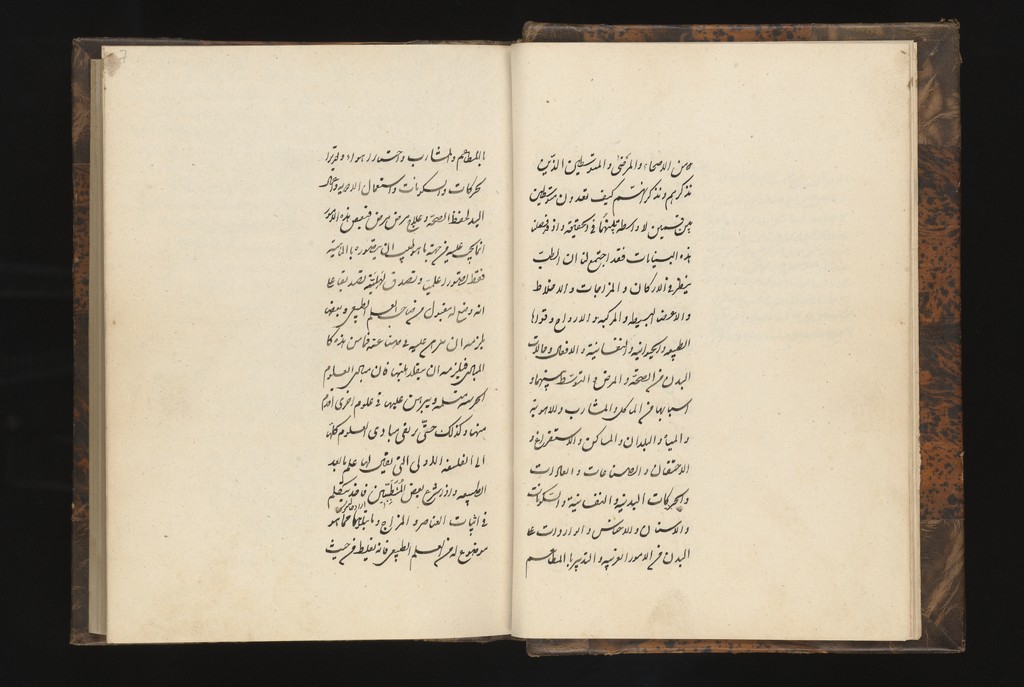 من الاصحاء والمرضى والمتوسطين الذين
نذكرهم ونذكر انهم كيف يعدون متوسطين
بين قسمين لا واسطة بينهما في الحقيقة واذ فصلنا
هذه البيانات فقد اجتمع لنا ان الطب
ينظر في الاركان والمزاجات والاخلاط
والاعضاء البسيطة والمركبة والارواح وقواها
الطبيعية والحيوانية والنفسانية والافعال وحالات
البدن من الصحة والمرض والتوسط بينهما و
اسبابها من الماكل والمشارب والاهوية
والمياه والبلدان والمساكن والاستفراغ و
الاحتقان والصناعات والعادات
والحركات البدنية والنفسانية والسكونات
والاسنان والاجناس والواردات على
البدن من الامور الغريبة والتدبير بالمطاعم
بالمطاعم والمشارب واختيار الهواء وتقدير
الحركات والسكونات واستعمال الادوية واعمال
اليد لحفظ الصحة وعلاج مرض مرض فبعض هذه الامور
انما يجب عليه من جهة ما هو طبيب ان يتصوره بالماهية
فقط تصورا علميا وتصدق هليته تصديقا على
انه وضع له مقبول من صاحب العلم الطبيعي وبعضها
يلزمه ان يبرهن عليه في صناعته فما من هذه كا
لمبادئ فيلزمه ان يتقلد هليتها فان مبادئ العلوم
الجزئية مسلمة ويبرهن عليها في علوم اخرى اقدم
منها وكذلك حتى يرتقى مبادى العلوم كلها
الى الفلسفة الاولى التي يقال لها علم ما بعد
الطبيعة واذا شرع بعض المتطببين فاخذ يتكلم
في اثبات العناصر والمزاج وما يتلوها مما هو
موضوع له من العلم الطبيعي فانه يغلط من حيث